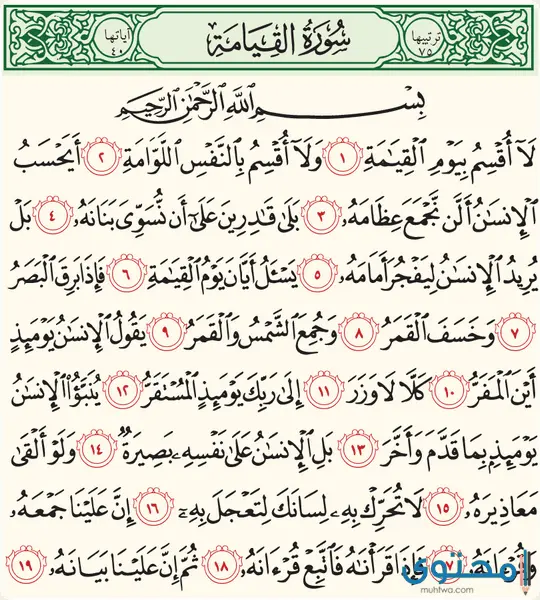 ترتيبها ٧٥ سُورَةُ القِيَامَةِ آياتها ٤٠
بِسْمِ اللَّهِ الرَّحْمَٰنِ الرَّحِيمِ
لَآ أُقْسِمُ بِيَوْمِ ٱلْقِيَٰمَةِ ١ وَلَآ أُقْسِمُ بِٱلنَّفْسِ ٱللَّوَّامَةِ ٢ أَيَحْسَبُ
ٱلْإِنسَٰنُ أَلَّن نَّجْمَعَ عِظَامَهُۥ ٣ بَلَىٰ قَٰدِرِينَ عَلَىٰٓ أَن نُّسَوِّىَ بَنَانَهُۥ ٤ بَلْ
يُرِيدُ ٱلْإِنسَٰنُ لِيَفْجُرَ أَمَامَهُۥ ٥ يَسْـَٔلُ أَيَّانَ يَوْمُ ٱلْقِيَٰمَةِ ٦ فَإِذَا بَرِقَ ٱلْبَصَرُ
٧ وَخَسَفَ ٱلْقَمَرُ ٨ وَجُمِعَ ٱلشَّمْسُ وَٱلْقَمَرُ ٩ يَقُولُ ٱلْإِنسَٰنُ يَوْمَئِذٍ
أَيْنَ ٱلْمَفَرُّ ١٠ كَلَّا لَا وَزَرَ ١١ إِلَىٰ رَبِّكَ يَوْمَئِذٍ ٱلْمُسْتَقَرُّ ١٢ يُنَبَّؤُا۟ ٱلْإِنسَٰنُ
يَوْمَئِذٍۭ بِمَا قَدَّمَ وَأَخَّرَ ١٣ بَلِ ٱلْإِنسَٰنُ عَلَىٰ نَفْسِهِۦ بَصِيرَةٌ ١٤ وَلَوْ أَلْقَىٰ
مَعَاذِيرَهُۥ ١٥ لَا تُحَرِّكْ بِهِۦ لِسَانَكَ لِتَعْجَلَ بِهِۦٓ ١٦ إِنَّ عَلَيْنَا جَمْعَهُۥ
وَقُرْءَانَهُۥ ١٧ فَإِذَا قَرَأْنَٰهُ فَٱتَّبِعْ قُرْءَانَهُۥ ١٨ ثُمَّ إِنَّ عَلَيْنَا بَيَانَهُۥ ١٩
محتوى
muhtwa.com